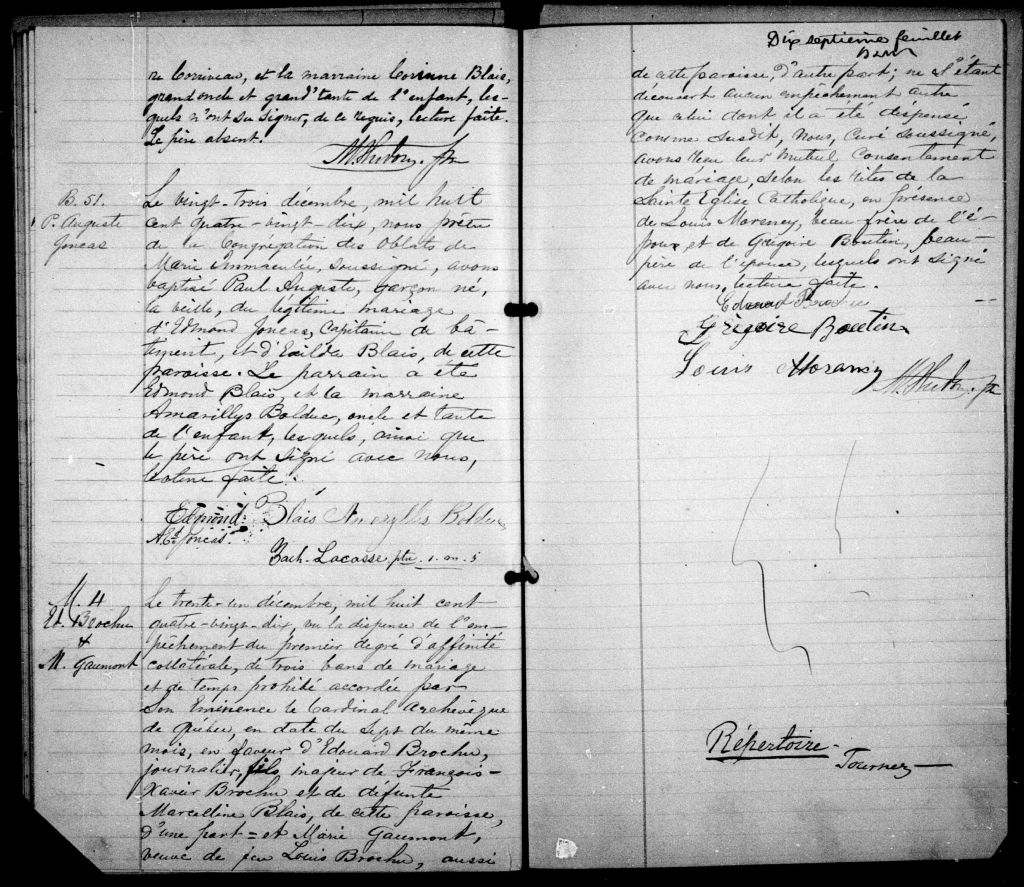 re Corriveau, et la marraine Corinne Blais,
grand oncle et grand'tante de l'enfant, les-
quels n'ont su signer, de ce requis, lecture faite.
Le père absent.
B. 51.
P. Auguste
Joncas
Le vingt-trois décembre, mil huit
cent quatre-vingt-dix, nous prêtre
de la Congrégation des Oblats de
Marie Immaculée, soussigné, avons
baptisé Paul Auguste, garçon né,
la veille, du légitime mariage
d'Edmond Joncas, Capitaine de bâ-
timent, et d'Exilda Blais, de cette
paroisse. Le parrain a été
Edmond Blais, et la marraine
Amarillys Bolduc, oncle et tante
de l'enfant, lesquels, ainsi que
le père ont signé avec nous,
lecture faite.
Edmond Blais Amaryllis Bolduc
Joncas
Zach. Lacasse ptre o.m.i
M. 4
Ed. Brochu
&
M. Gaumont
Le trente-un décembre, mil huit cent
quatre-vingt-dix, vu la dispense de l'em-
pêchement du premier degré d'affinité
collatérale, de trois bans de mariage
et de temps prohibé accordée par
Son Eminence le Cardinal Archevêque
de Québec, en date du sept du même
mois, en faveur d'Edouard Brochu,
journalier, fils majeur de François-
Xavier Brochu et de défunte
Marcelline Blais, de cette paroisse,
d'une part = et Marie Gaumont,
veuve de feu Louis Brochu, aussi
Dix septième feuillet
de cette paroisse, d'autre part; ne s'étant
découvert aucun empêchement autre
que celui dont il a été dispensé
comme susdit, nous, Curé soussigné,
avons reçu leur mutuel consentement
de mariage, selon les rites de la
Sainte Eglise Catholique, en présence
de Louis Morency, beau-frère de l'é-
poux et de Grégoire Boutin, beau-
père de l'épouse, lesquels ont signé
avec nous, lecture faite.
Edouard Brochu
Grégoire Boutin
Louis Morency
Répertoire -
Tournez —